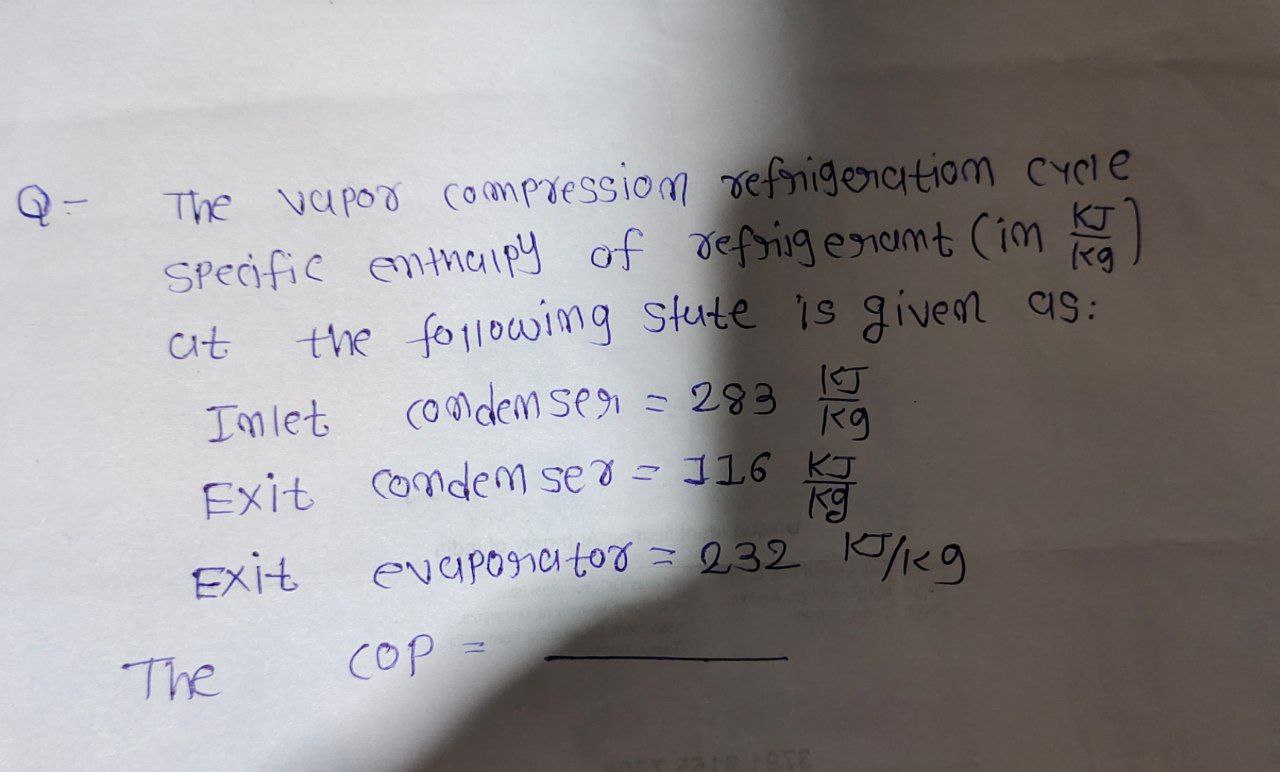 Q- The vapor compression refrigeration cycle
specific enthalpy of refrigerant (in KJ/Kg)
at the following state is given as:
Inlet condenser = 283 KJ/Kg
Exit condenser = 116 KJ/Kg
Exit evaporator = 232 KJ/Kg
The COP = ________